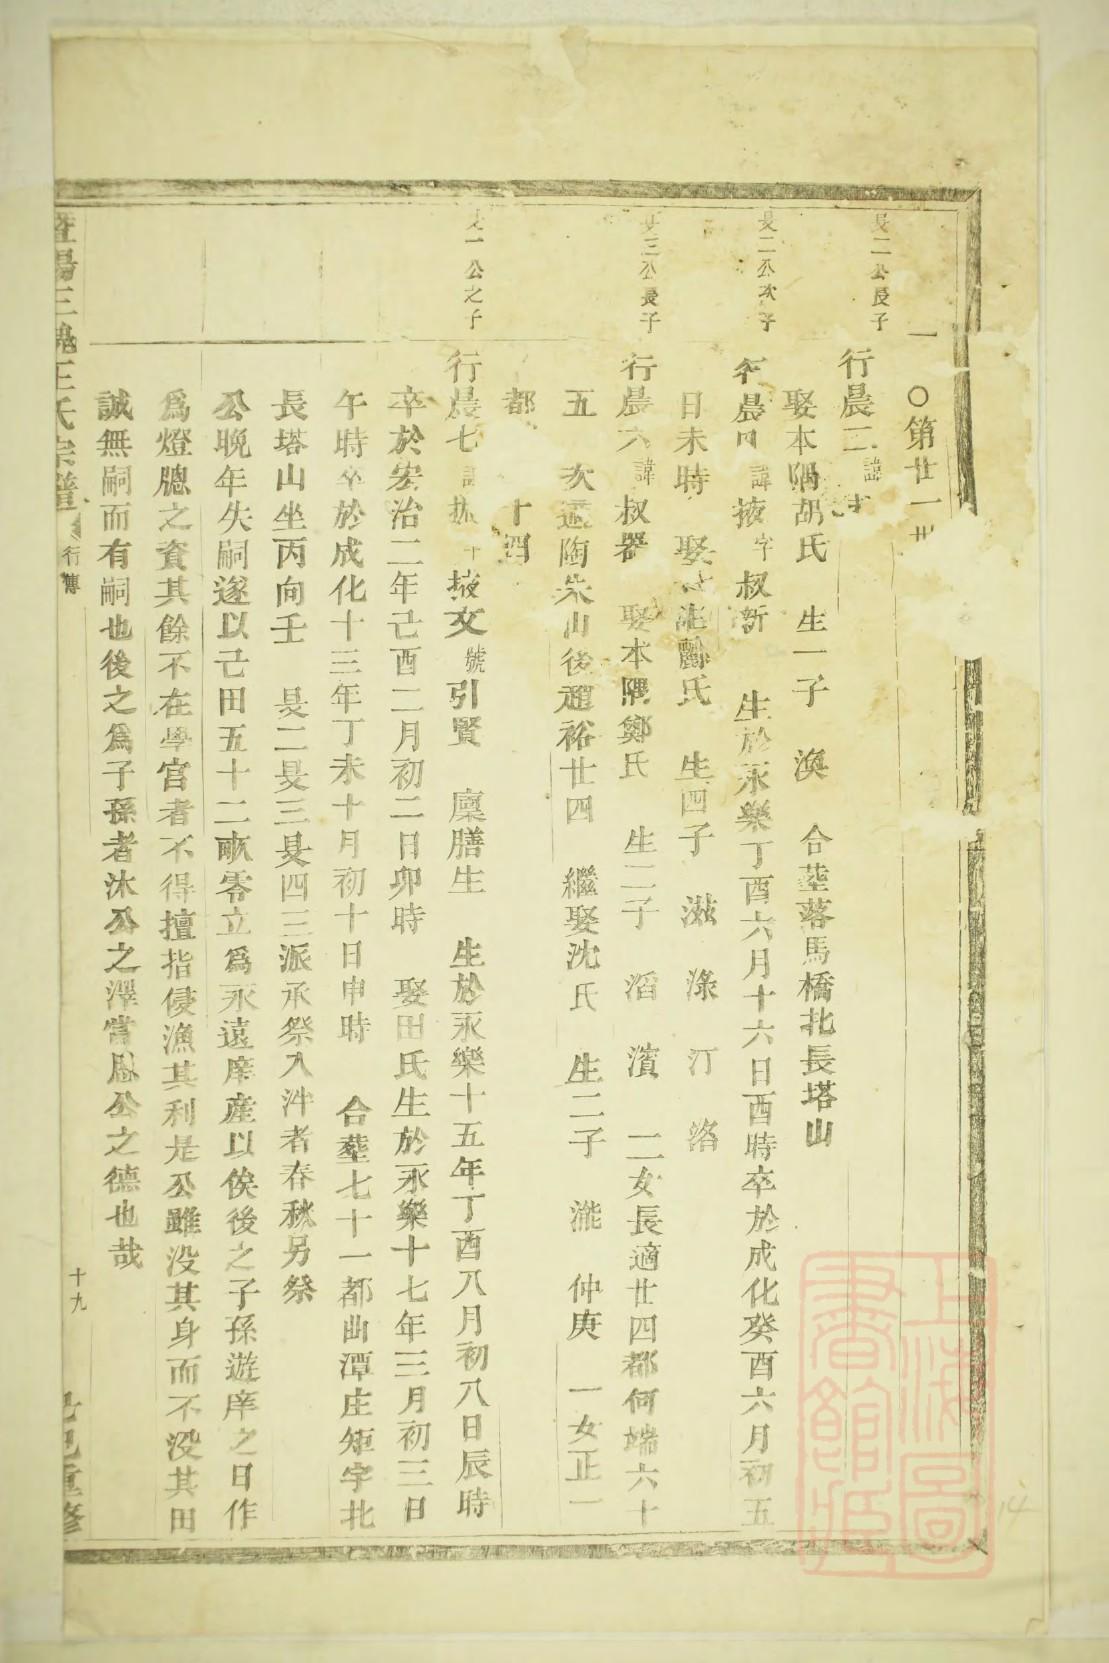 〇第廿一世
旻二公長子
行晨二諱
娶本隅胡氏 生一子 渙 合塟落馬橋北長塔山
旻二公次子
行晨四諱掖字叔新 生於永樂丁酉六月十六日酉時卒於成化癸酉六月初五
日未時 娶 氏 生四子 滋 淥 汀 滔
旻三公長子
行晨六諱叔器 娶本隅鄭氏 生二子 滔 濱 二女長適廿四都何端六十
五 次適陶朱山後趙裕廿四 繼娶沈氏 生二子 瀧 仲庚 一女正一
都 十四
旻一公之子
行晨七諱振 字掖文號引賢 廩膳生 生於永樂十五年丁酉八月初八日辰時
卒於宏治二年己酉二月初二日卯時 娶田氏生於永樂十七年三月初三日
午時卒於成化十三年丁未十月初十日申時 合塟七十一都曲潭庄矩字北
長塔山坐丙向壬 旻二旻三旻四三派承祭入泮者春秋另祭
公晩年失嗣遂以己田五十二畝零立爲永遠庠產以俟後之子孫遊庠之日作
爲燈牕之資其餘不在學官者不得擅指侵漁其利是公雖没其身而不没其田
誠無嗣而有嗣也後之爲子孫者沐公之澤當思公之德也哉
暨陽三槐王氏宗譜 行傳 十九 己巳重修
上海圖書館藏
14